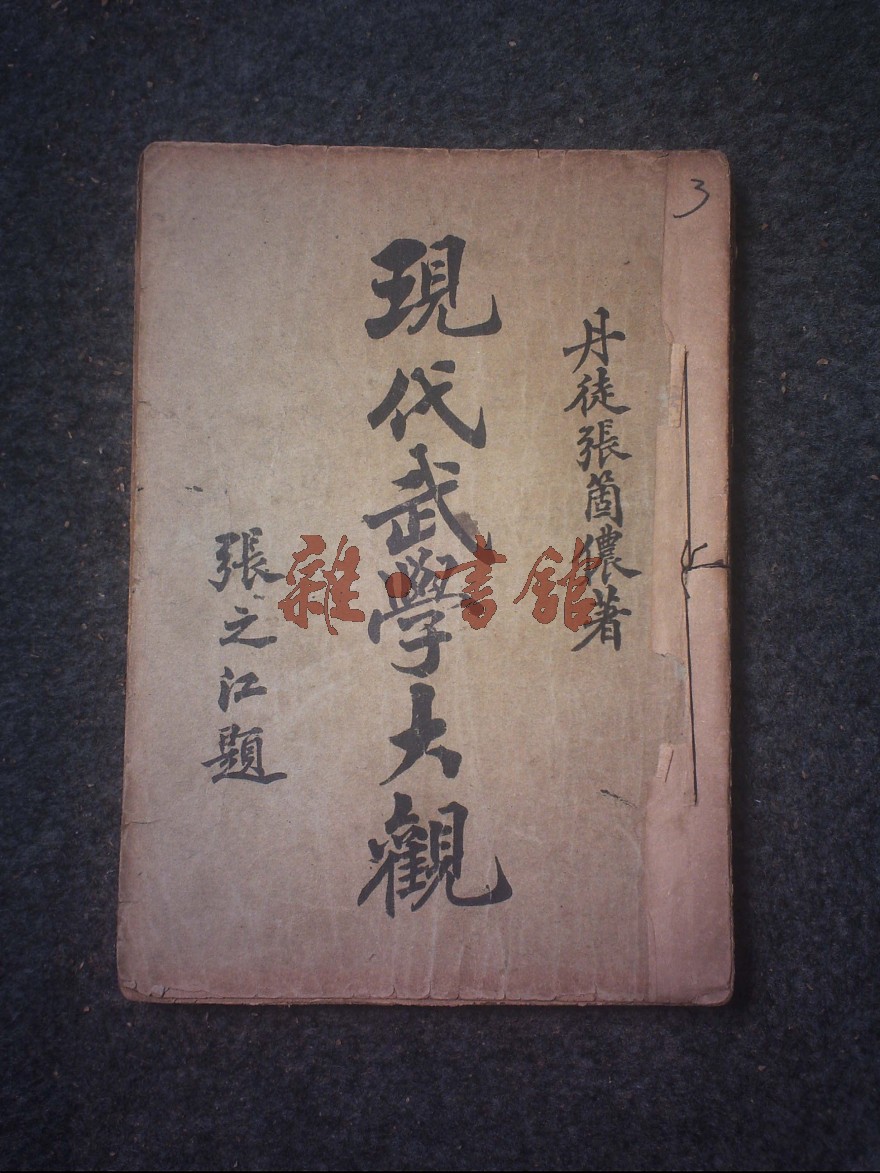 3
丹徒張箇儂著
現代武學大觀
張之江題
雜·書館